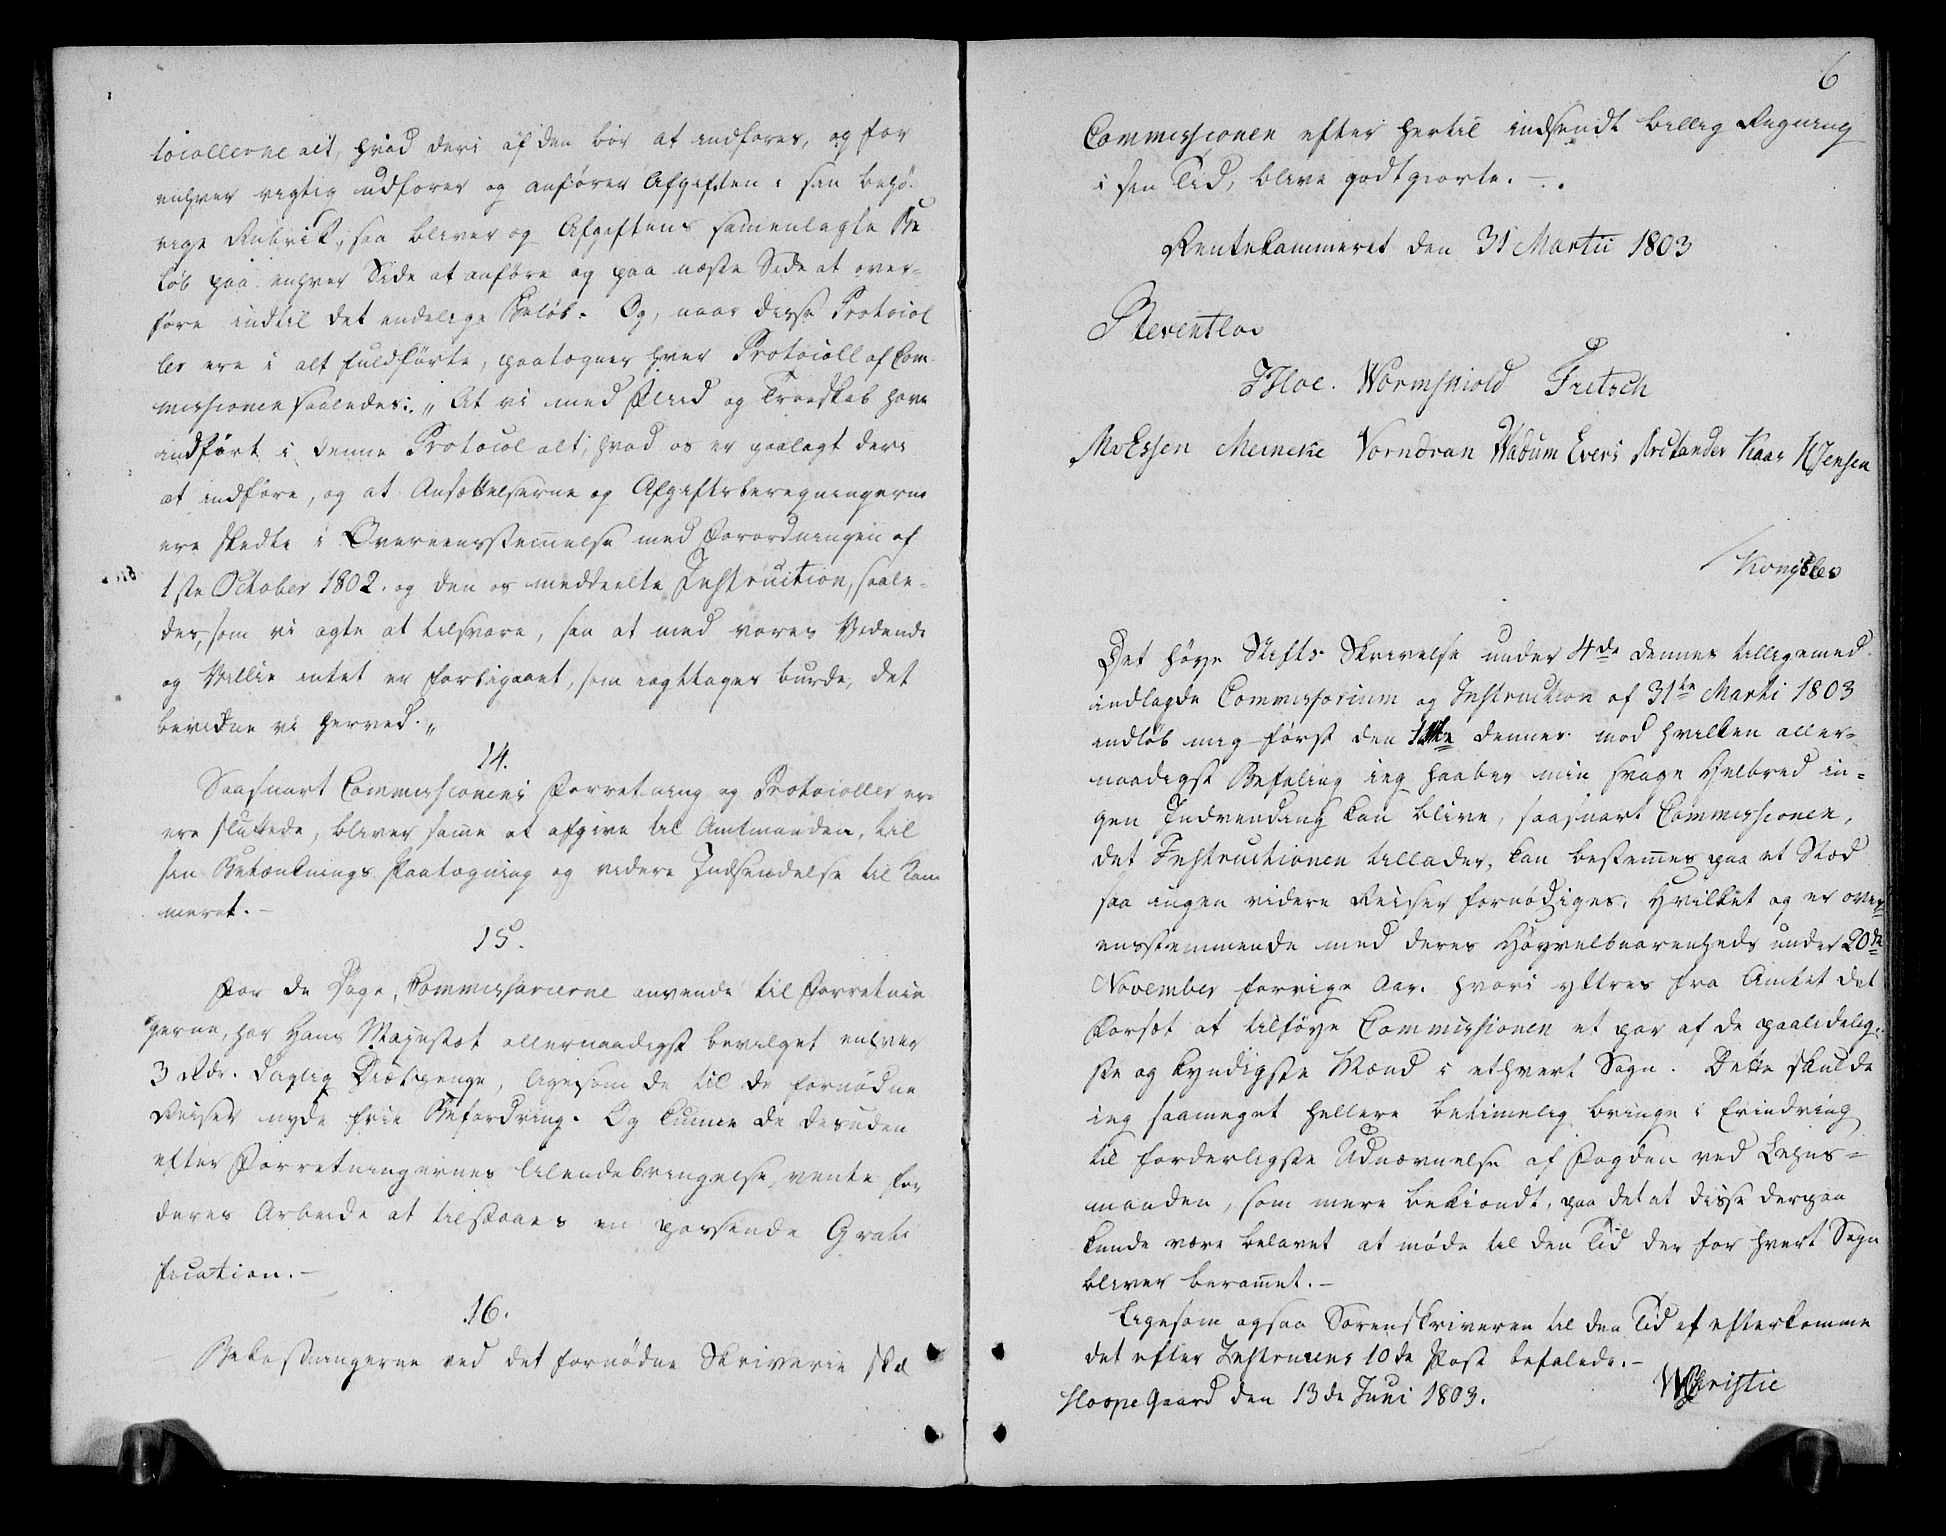 tocollerne alt, hvad deri af den bör at indföres, og for
enhver rigtig udförer og anförer Afgiften i sin behö-
rige Rubrik, saa bliver og Afgiftens sammenlagte Be-
löb paa enhver Side at anföre og paa næste Side at over-
före indtil det endelige Beløb. Og, naar disse Protocol
ler ere i alt fuldförte, paategner hver Protocoll af Com-
missionen saaledes: „At vi med Fliid og Troeskab have
indfört i denne Protocol alt, hvad os er paalagt deri
at indföre, og at Ansættelserne og Afgiftsberegningerne
ere skedte i Overeensstemmelse med Forordningen af
1ste October 1802. og den os meddeelte Instruction, saale-
des, som vi agte at tilsvare, saa at med vores Vidende
og Villie intet er forbigaaet, som iagttages burde, det
bevidne vi herved.„
14.
Saasnart Commissionens Forretning og Protocoller er
ere sluttede, bliver samme at afgive til Amtmanden, til
sin Betænknings Paategning og videre Indsendelse til Kam
meret. -
15.
For de Dage, Commissarierne anvende til Forretnin
gerne, har Hans Majestæt allernaadigst bevilget enhver
3 Rdr. daglig Diætpenge, ligesom de til de fornödne
Reiser nyde frie Befordring. Og kunne de desuden
efter Forretningernes tilendebringelse, vente for
deres Arbeide at tilstaaes en passende Grati
fication. -
16.
Bekostningerne ved det fornödne Skriverie skal
6
Commissionen efter hertil indsendt billig Regning
i sin Tid, blive godtgiorte. -.
Rentekammeret den 31 Martii 1803
Reventlow
JHoe. Wormskiold Fritsch
MvEssen Meincke Vorndran Wadum Evers Kaas HJensen
Det høye Stifts Skrivelse under 4de dennes tilligemed
indlagde Commissorium og Instruction af 31te Marti 1803
indløb mig först den dennes mod hvilken aller-
naadigst Befaling ieg haaber min svage Helbred in-
gen Indvending kan blive, saasnart Commissionen,
det Instructionen tillader, kan bestemmes paa et Stæd
saa ingen videre Reiser fornødiges. Hvilket og er over
ensstemmende med deres Høyvelbaarenheds under 20de
November forrige Aar. hvori yttres fra Amtet det
Forsæt at tilföye Commissionen et par af de paalidelig-
ste og kyndigste Mænd i ethvert Sogn. Dette skulde
ieg saameget hellere betimelig bringe i Erindring
til forderligste Udnævnelse af Fogden ved Lehns-
manden, som mere bekiendt, paa det at disse derpaa
kunde være belavet at møde til den Tid der for hvert Sogn
bliver berammet. -
Ligesom ogsaa Sorenskriveren til den Tid at efterkomme
det efter Instruxens 10de Post befalede. -
WChristie
HoopeGaard den 13de Juni 1803.